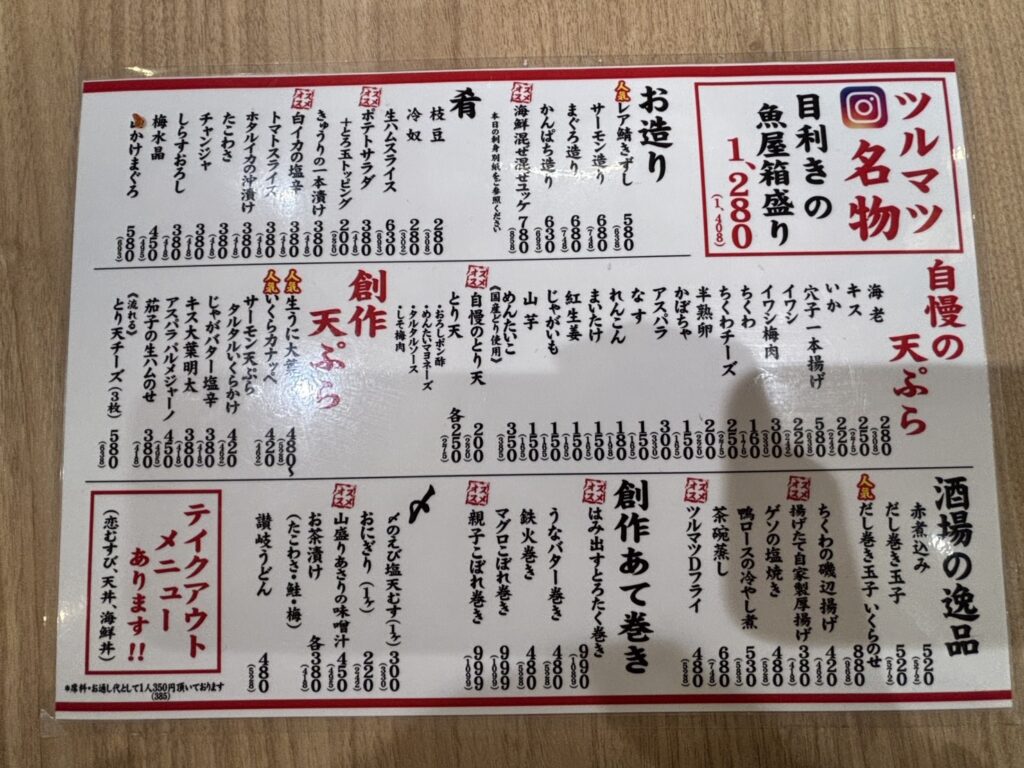 ツルマツ
名物
目利きの
魚屋箱盛り
1,280
(1,408)
お造り
人気 レア鯖きずし 580 (638)
サーモン造り 680 (748)
まぐろ造り 680 (748)
かんぱち造り 630 (693)
オススメ 海鮮混ぜ混ぜユッケ 780 (858)
本日の刺身別紙をご参照ください
肴
枝豆 280 (308)
冷奴 280 (308)
生ハムスライス 630 (693)
オススメ ポテトサラダ 380 (418)
+とろ玉トッピング 200 (220)
きゅうりの一本漬け 380 (418)
オススメ 白イカの塩辛 380 (418)
トマトスライス 380 (418)
ホタルイカの沖漬け 380 (418)
たこわさ 380 (418)
チャンジャ 380 (418)
しらすおろし 380 (418)
梅水晶 450 (495)
かけまぐろ 580 (638)
自慢の
天ぷら
海老 280 (308)
キス 250 (275)
いか 220 (242)
穴子一本揚げ 580 (638)
イワシ 220 (242)
イワシ梅肉 300 (330)
ちくわ 160 (176)
ちくわチーズ 250 (275)
半熟卵 200 (220)
かぼちゃ 150 (165)
アスパラ 300 (330)
なす 150 (165)
れんこん 180 (198)
まいたけ 150 (165)
紅生姜 150 (165)
じゃがいも 150 (165)
山芋 150 (165)
めんたいこ 350 (385)
《国産どり使用》
オススメ 自慢のとり天 200 (220)
とり天 各250 (275)
・おろしポン酢
・めんたいマヨネーズ
・タルタルソース
・しそ梅肉
創作
天ぷら
人気 生うに大葉 480〜 (528)
人気 いくらカナッペ 420 (462)
サーモン天ぷら
タルタルいくらかけ 420 (462)
じゃがバター塩辛 380 (418)
キス大葉明太 380 (418)
アスパラパルメジャーノ 450 (495)
茄子の生ハムのせ 380 (418)
《流れる》
とり天チーズ（3枚） 580 (638)
酒場の逸品
赤煮込み 520 (572)
だし巻き玉子 520 (572)
人気 だし巻き玉子 いくらのせ 880 (968)
ちくわの磯辺揚げ 420 (462)
オススメ 揚げたて自家製厚揚げ 380 (418)
ゲソの塩焼き 480 (528)
鴨ロースの冷やし煮 530 (583)
茶碗蒸し 680 (748)
オススメ ツルマツDフライ 480 (528)
創作あて巻き
オススメ はみ出すとろたく巻き 990
うなバター巻き 480 (528)
鉄火巻き 480 (528)
マグロこぼれ巻き 999
オススメ 親子こぼれ巻き 999
〆
〆のえび塩天むす（1ヶ） 300 (330)
おにぎり（1ヶ） 220 (242)
オススメ 山盛りあさりの味噌汁 450 (495)
お茶漬け 各380 (418)
（たこわさ・鮭・梅）
讃岐うどん 480 (528)
テイクアウト
メニュー
あります!!
（恋むすび、天丼、海鮮丼）
*席料・お通し代として1人350円頂いております
(385)